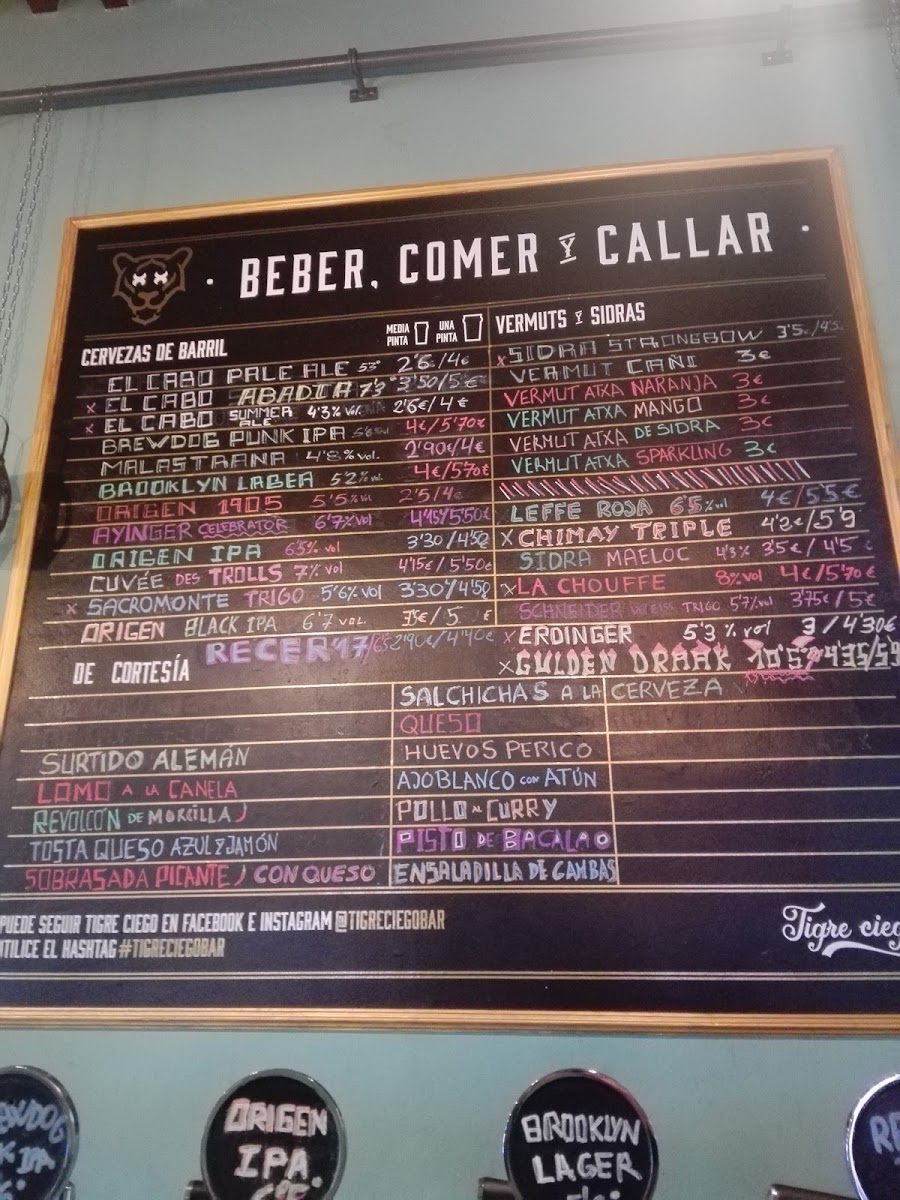 BEBER, COMER Y CALLAR
CERVEZAS DE BARRIL
MEDIA PINTA UNA PINTA
EL CABO PALE ALE 2'6/4€
x EL CABO ABADIA 7'2 3'50/5€
x EL CABO SUMMER ALE 4'3% vol. 2'6€/4€
BREWDOG PUNK IPA 4€/5'70€
MALASTRANA 4'8% vol. 2'90€/4€
BROOKLYN LAGER 5'2% vol. 4€/5'70€
ORIGEN 1905 5'5% vol 2'5/4€
AYINGER CELEBRATOR 6'7% vol 4'15€/5'50€
ORIGEN IPA 6'5% vol 3'30/4'50
CUVÉE DES TROLLS 7% vol 4'15€/5'50€
x SACROMONTE TRIGO 5'6% vol 3'30/4'50
ORIGEN BLACK IPA 6'7 VOL. 5€
RECER'17 2'90€/4'40€
VERMUTS Y SIDRAS
x SIDRA STRONGBOW 3'5€/4'5
VERMUT CAÑI 3€
VERMUT ATXA NARANJA 3€
VERMUT ATXA MANGO 3€
VERMUT ATXA DE SIDRA 3€
VERMUT ATXA SPARKLING 3€
LEFFE ROJA 6'5% vol 4€/5'5€
x CHIMAY TRIPLE 4'2€/5'9
SIDRA MAELOC 4'3% 3'5€/4'5
x LA CHOUFFE 8% vol 4€/5'70€
SCHNEIDER WEISS TRIGO 5'7% vol 3'75€/5€
x ERDINGER 5'3% vol 3/4'30€
x GULDEN DRAAK 10'5% 4'35/5'9
DE CORTESÍA
SURTIDO ALEMÁN
LOMO A LA CANELA
REVOLCÓN DE MORCILLA
TOSTA QUESO AZUL Y JAMÓN
SOBRASADA PICANTE CON QUESO
SALCHICHAS A LA CERVEZA
QUESO
HUEVOS PERICO
AJOBLANCO CON ATÚN
POLLO AL CURRY
PISTO DE BACALAO
ENSALADILLA DE GAMBAS
PUEDE SEGUIR TIGRE CIEGO EN FACEBOOK E INSTAGRAM @TIGRECIEGOBAR
UTILICE EL HASHTAG #TIGRECIEGOBAR
Tigre cieg
ORIGEN
IPA
BROOKLYN
LAGER